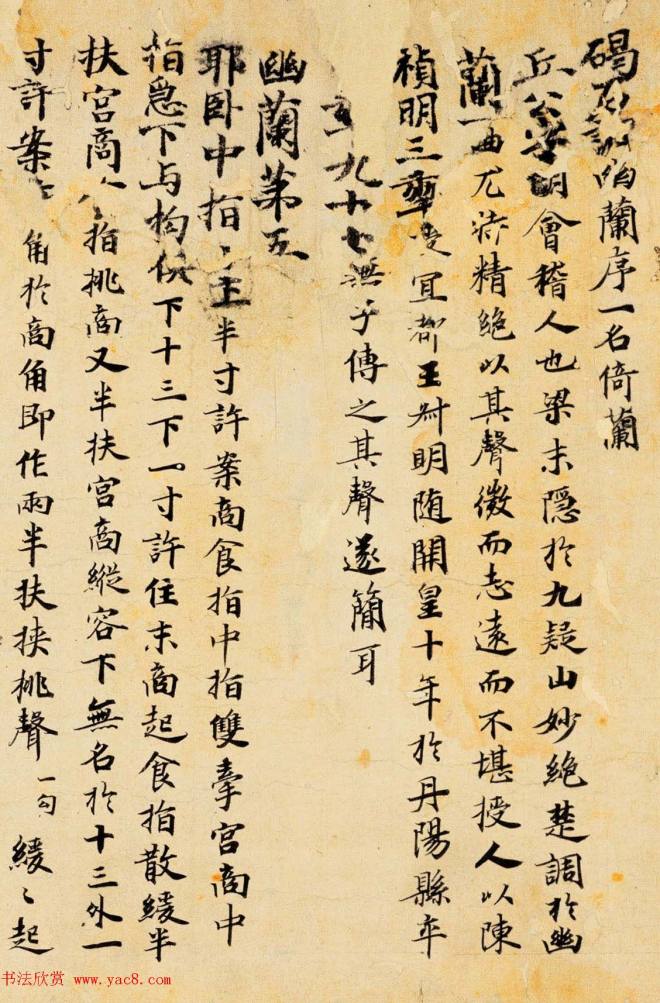 碣石調幽蘭序一名倚蘭
丘公字明會稽人也梁末隱於九疑山妙絕楚調於幽
蘭一曲尤特精絕以其聲微而志遠而不堪授人以陳
禎明三年授宜都王叔明随開皇十年於丹陽縣卒
九十七無子傳之其聲遂簡耳
幽蘭第五
耶卧中指〻上半寸許案商食指中指雙牽宮商中
指急下与拘俱下十三下一寸許住末商起食指散緩半
扶宮商食指挑商又半扶宮商縱容下無名於十三外一
寸許案 角於商角即作兩半扶挾挑聲一句 緩〻起
书法欣赏 www.yac8.com